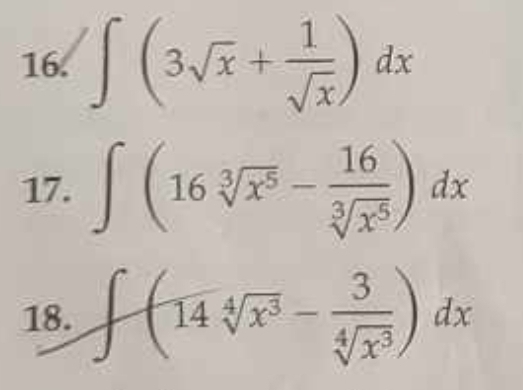 16. ∫ (3√x + 1/√x) dx
17. ∫ (16 ∛(x⁵) − 16/∛(x⁵)) dx
18. ∫ (14 ∜(x³) − 3/∜(x³)) dx